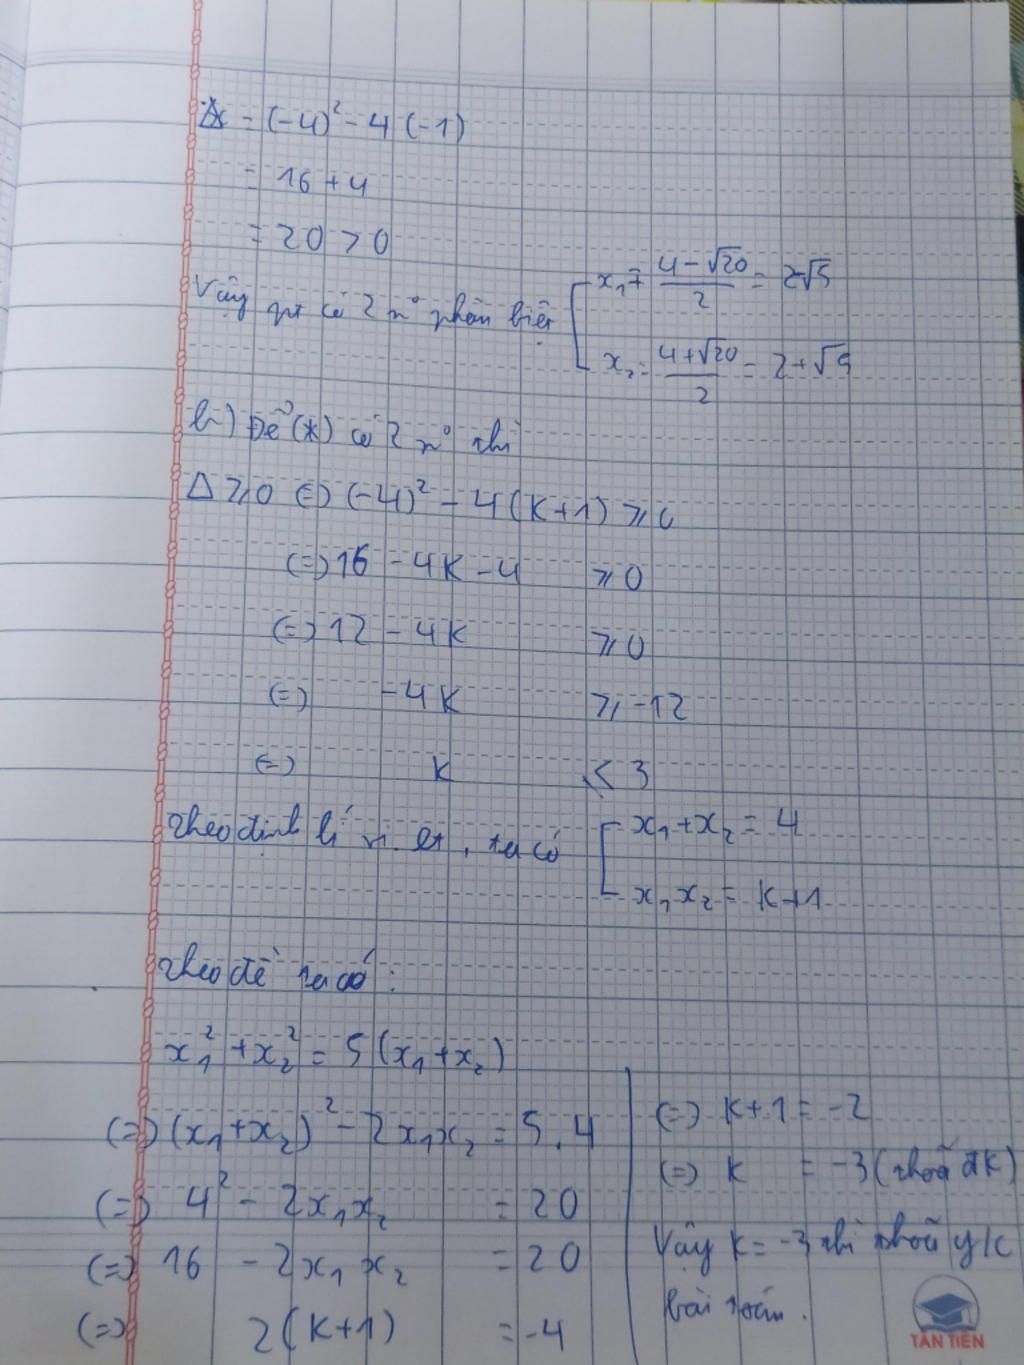 Δ = (-4)² - 4(-1)
= 16 + 4
= 20 > 0
Vậy pt có 2 n° phân biệt [ x₁ = (4 - √20)/2 = 2√5
x₂ = (4 + √20)/2 = 2 + √5
b) Để (*) có 2 n° thì
Δ ≥ 0 (=) (-4)² - 4(K+1) ≥ 0
(=) 16 - 4K - 4 ≥ 0
(=) 12 - 4K ≥ 0
(=) -4K ≥ -12
(=) K ≤ 3
Theo định lí vi-et, ta có [ x₁ + x₂ = 4
x₁x₂ = K+1
Theo đề ta có:
x₁² + x₂² = 5(x₁ + x₂)
(=) (x₁ + x₂)² - 2x₁x₂ = 5.4
(=) 4² - 2x₁x₂ = 20
(=) 16 - 2x₁x₂ = 20
(=) 2(K+1) = -4
(=) K+1 = -2
(=) K = -3 (thoã đk)
Vậy K = -3 thì thoã y/c
bài toán.
TÂN TIẾN